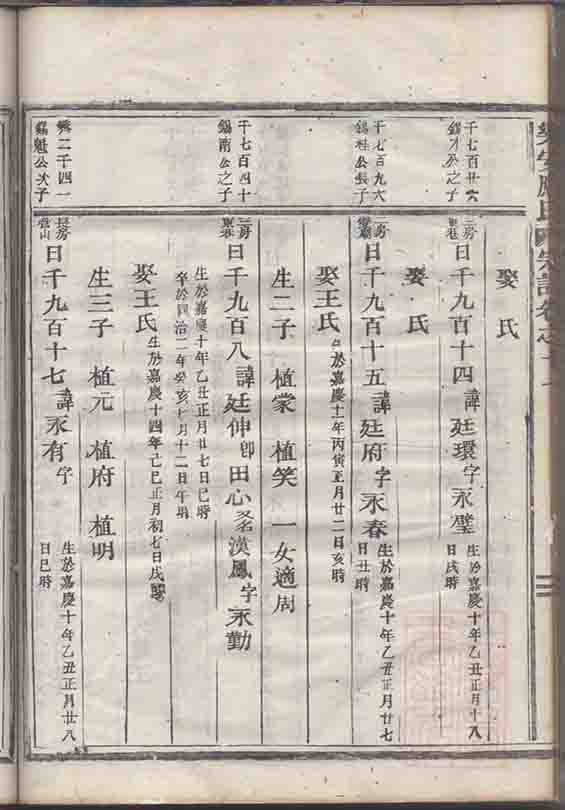 娶 氏
千七百廿六
錫才公之子
三房
曰千九百十四諱廷環字永璧生於嘉慶十年乙丑正月十八
日戌時
娶 氏
千七百九六
錫桂公長子
三房
曰千九百十五諱廷府字永春生於嘉慶十年乙丑正月廿七
日丑時
娶王氏生於嘉慶十一年丙寅正月廿二日亥時
生二子 植棠 植笑 一女適周
千七百四十
錫南公之子
三房
曰千九百八諱廷伸卽田心又名漢鳳字永勤
生於嘉慶十年乙丑正月廿七日巳時
卒於同治二年癸亥七月十二日午時
娶王氏生於嘉慶十四年己巳正月初七日戌時
生三子 植元 植府 植明
二千四一
錫魁公次子
長房
曰千九百十七諱永有字 生於嘉慶十年乙丑正月廿八
日巳時